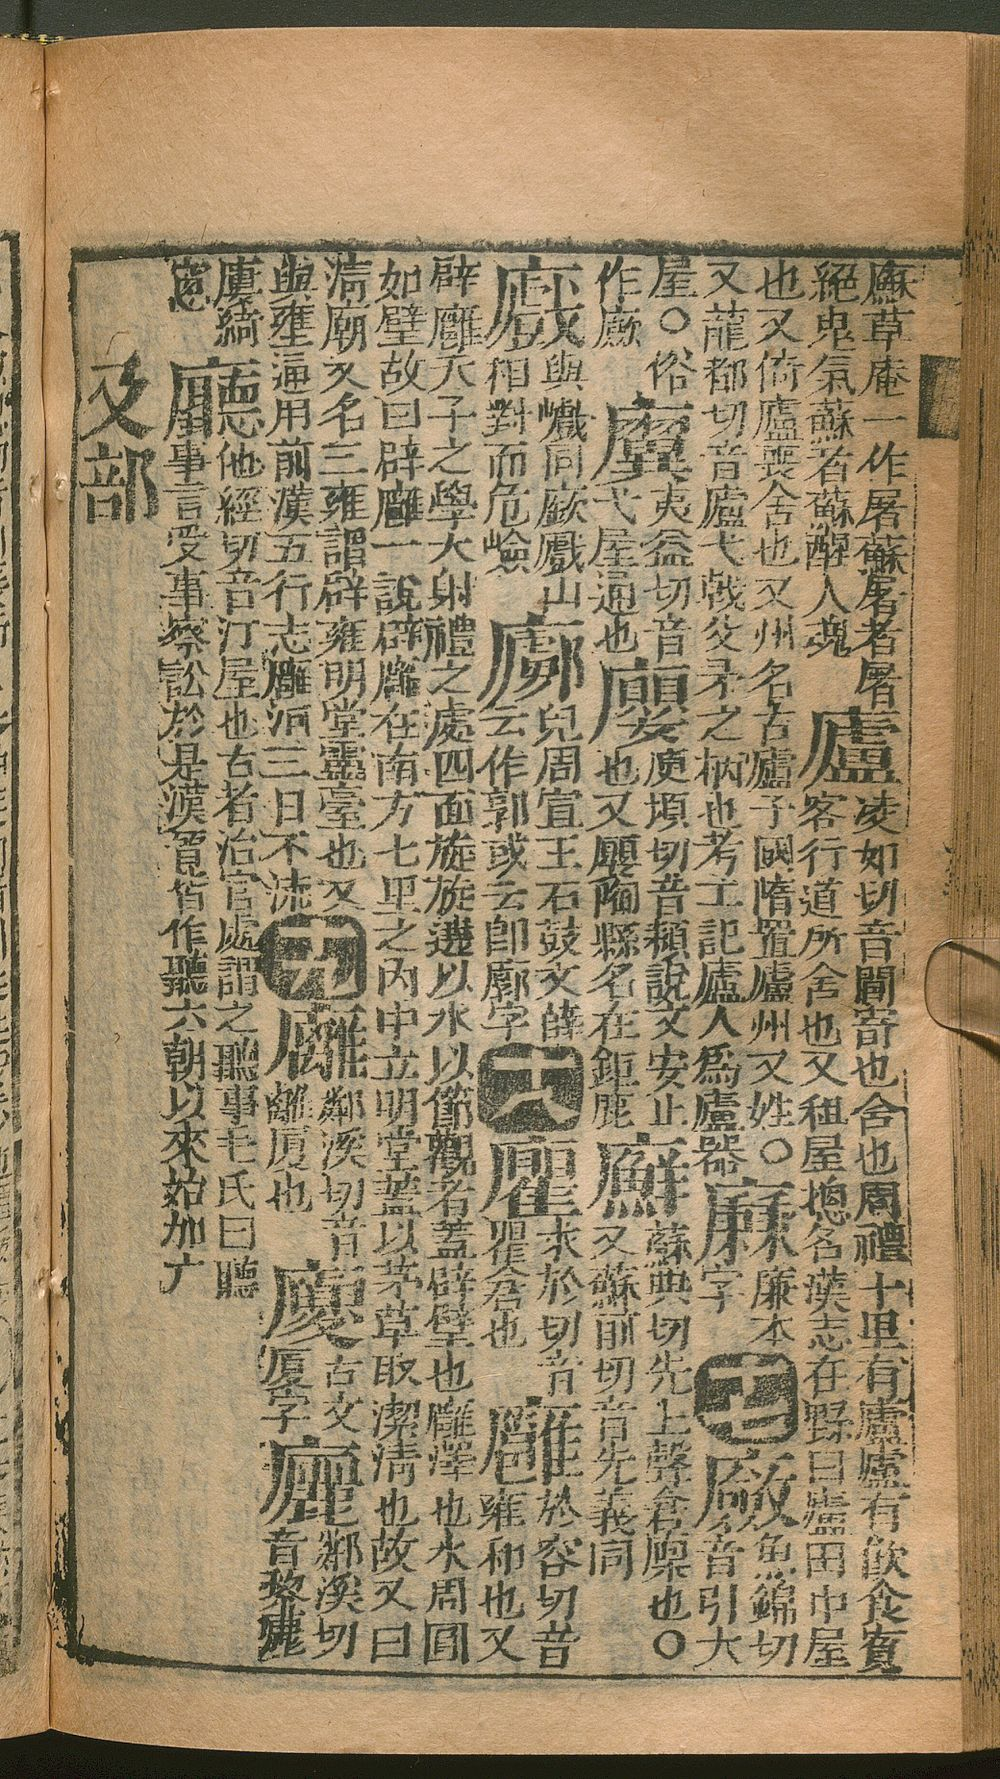 廜草庵一作屠蘇屠者屠
絕鬼氣蘇者蘇醒人魂
廬凌如切音閭寄也舍也周禮十里有廬廬有飲食賓
客行道所舍也又租屋總名漢志在野曰廬田中屋
也又倚廬喪舍也又州名古廬子國隋置廬州又姓〇
又龍都切音盧弋戟殳矛之柄也考工記廬人為廬器
𪪚本廉字
十九
厰魚錦切音引大
屋〇俗作厰
廙夷益切音弋屋通也
廮庾頃切音頴說文安止也又廮陶縣名在鉅鹿
廯蘇典切先上聲倉廩也〇又蘇前切音先義同
㕒與巇同㕒㕒山相對而危險
兒周宣王石鼓文薛云作郭或云卽廓字
十八
求於切音瞿瞿舍也
廱於容切音雍和也又
辟廱天子之學大射禮之處四面旋旋邊以水以節觀者蓋辟璧也廱澤也水周圓
如璧故曰辟廱一說辟廱在南方七里之內中立明堂蓋以茅草取潔清也故又曰
清廟又名三雍謂辟雍明堂靈臺也又
與壅通用前漢五行志廱河三日不流
鄰溪切音離廈也
古文廈字
鄰溪切音黎
廔綺窓
廳他經切音汀屋也古者治官處謂之聽事毛氏曰聽
事言受事察訟於是漢晉皆作聽六朝以來始加广
廴部